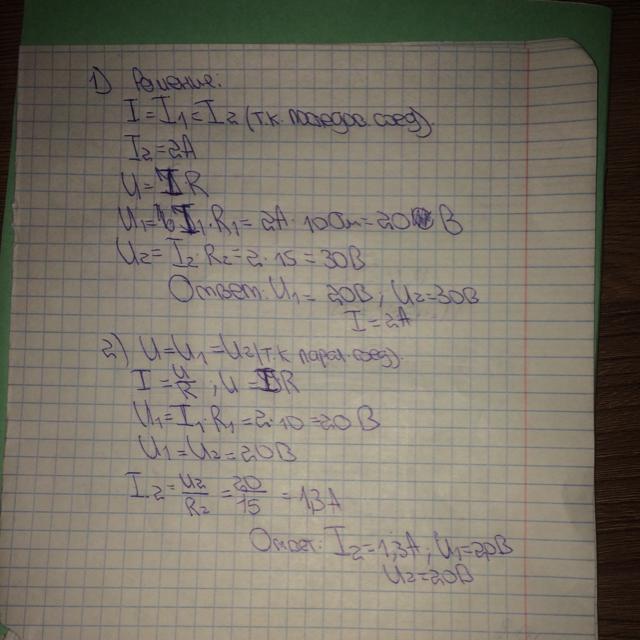 1) Решение:
I = I₁ = I₂ (т.к. последов. соед)
I₂ = 2А
U = IR
U₁ = I₁·R₁ = 2А·10Ом = 20 В
U₂ = I₂·R₂ = 2·15 = 30В
Ответ: U₁ = 20В, U₂ = 30В
I = 2А
2) U = U₁ = U₂ (т.к. парал. соед).
I = U/R, U = IR
U₁ = I₁·R₁ = 2·10 = 20 В
U₁ = U₂ = 20В
I₂ = U₂/R₂ = 20/15 = 1,3 А
Ответ: I₂ = 1,3А, U₁ = 20В
U₂ = 20В